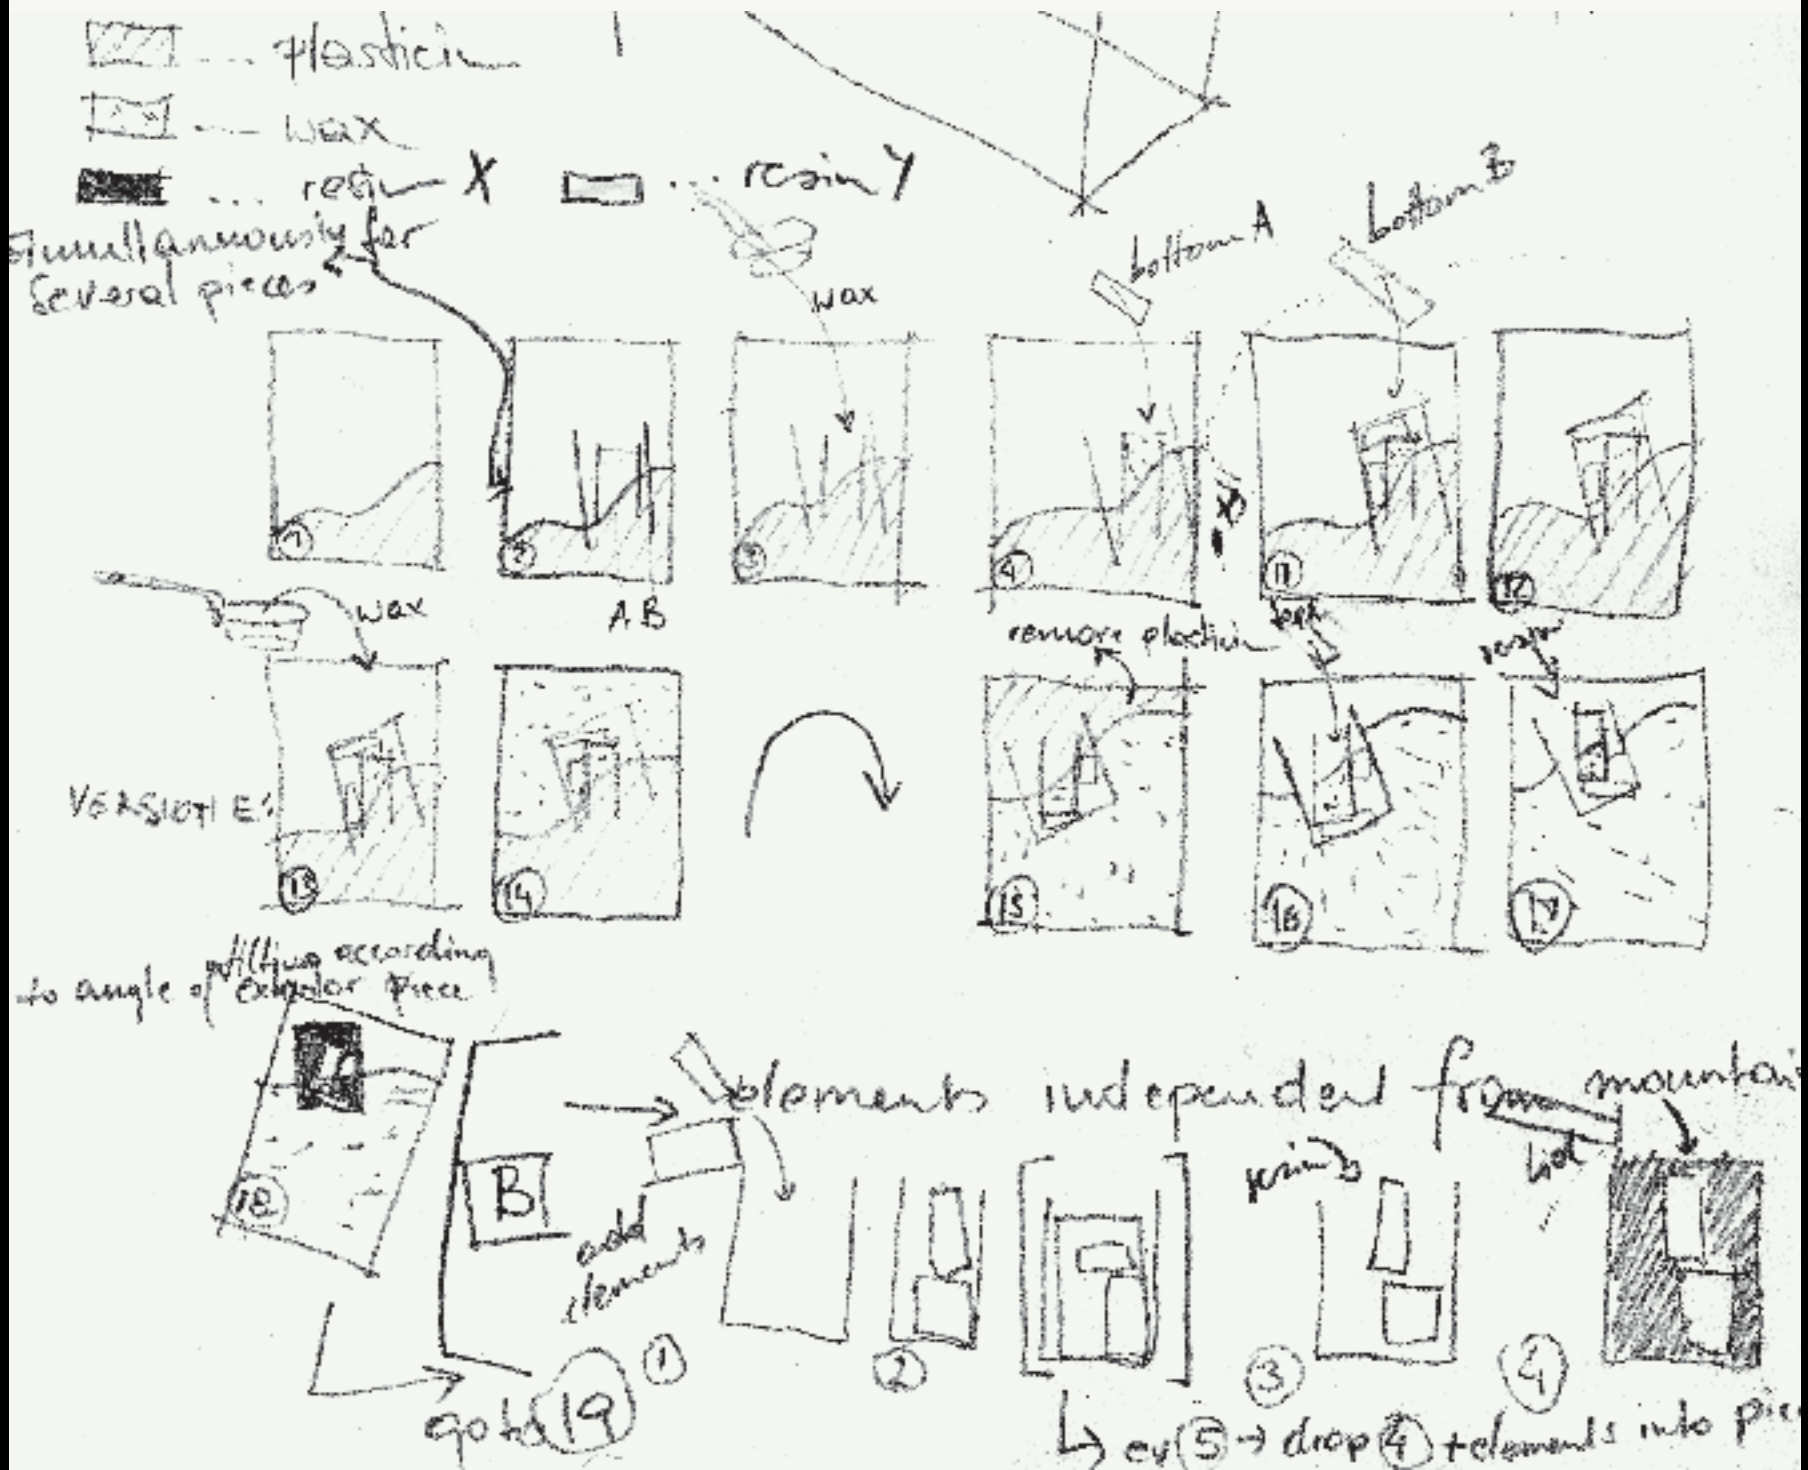 ... Plasticin
... wax
... resin X ... resin Y
Simultaneously for
several pieces
wax
bottom A
bottom B
1 2 3 4 11 12
wax
A B
remove plasticin
resin
VERSION E:
13 14 15 16 17
tilting according
to angle of piece
18
B
elements independent from mountain
add
elements
resin
1 2 3 4
go to 19
ev 5 → drop 4 + elements into